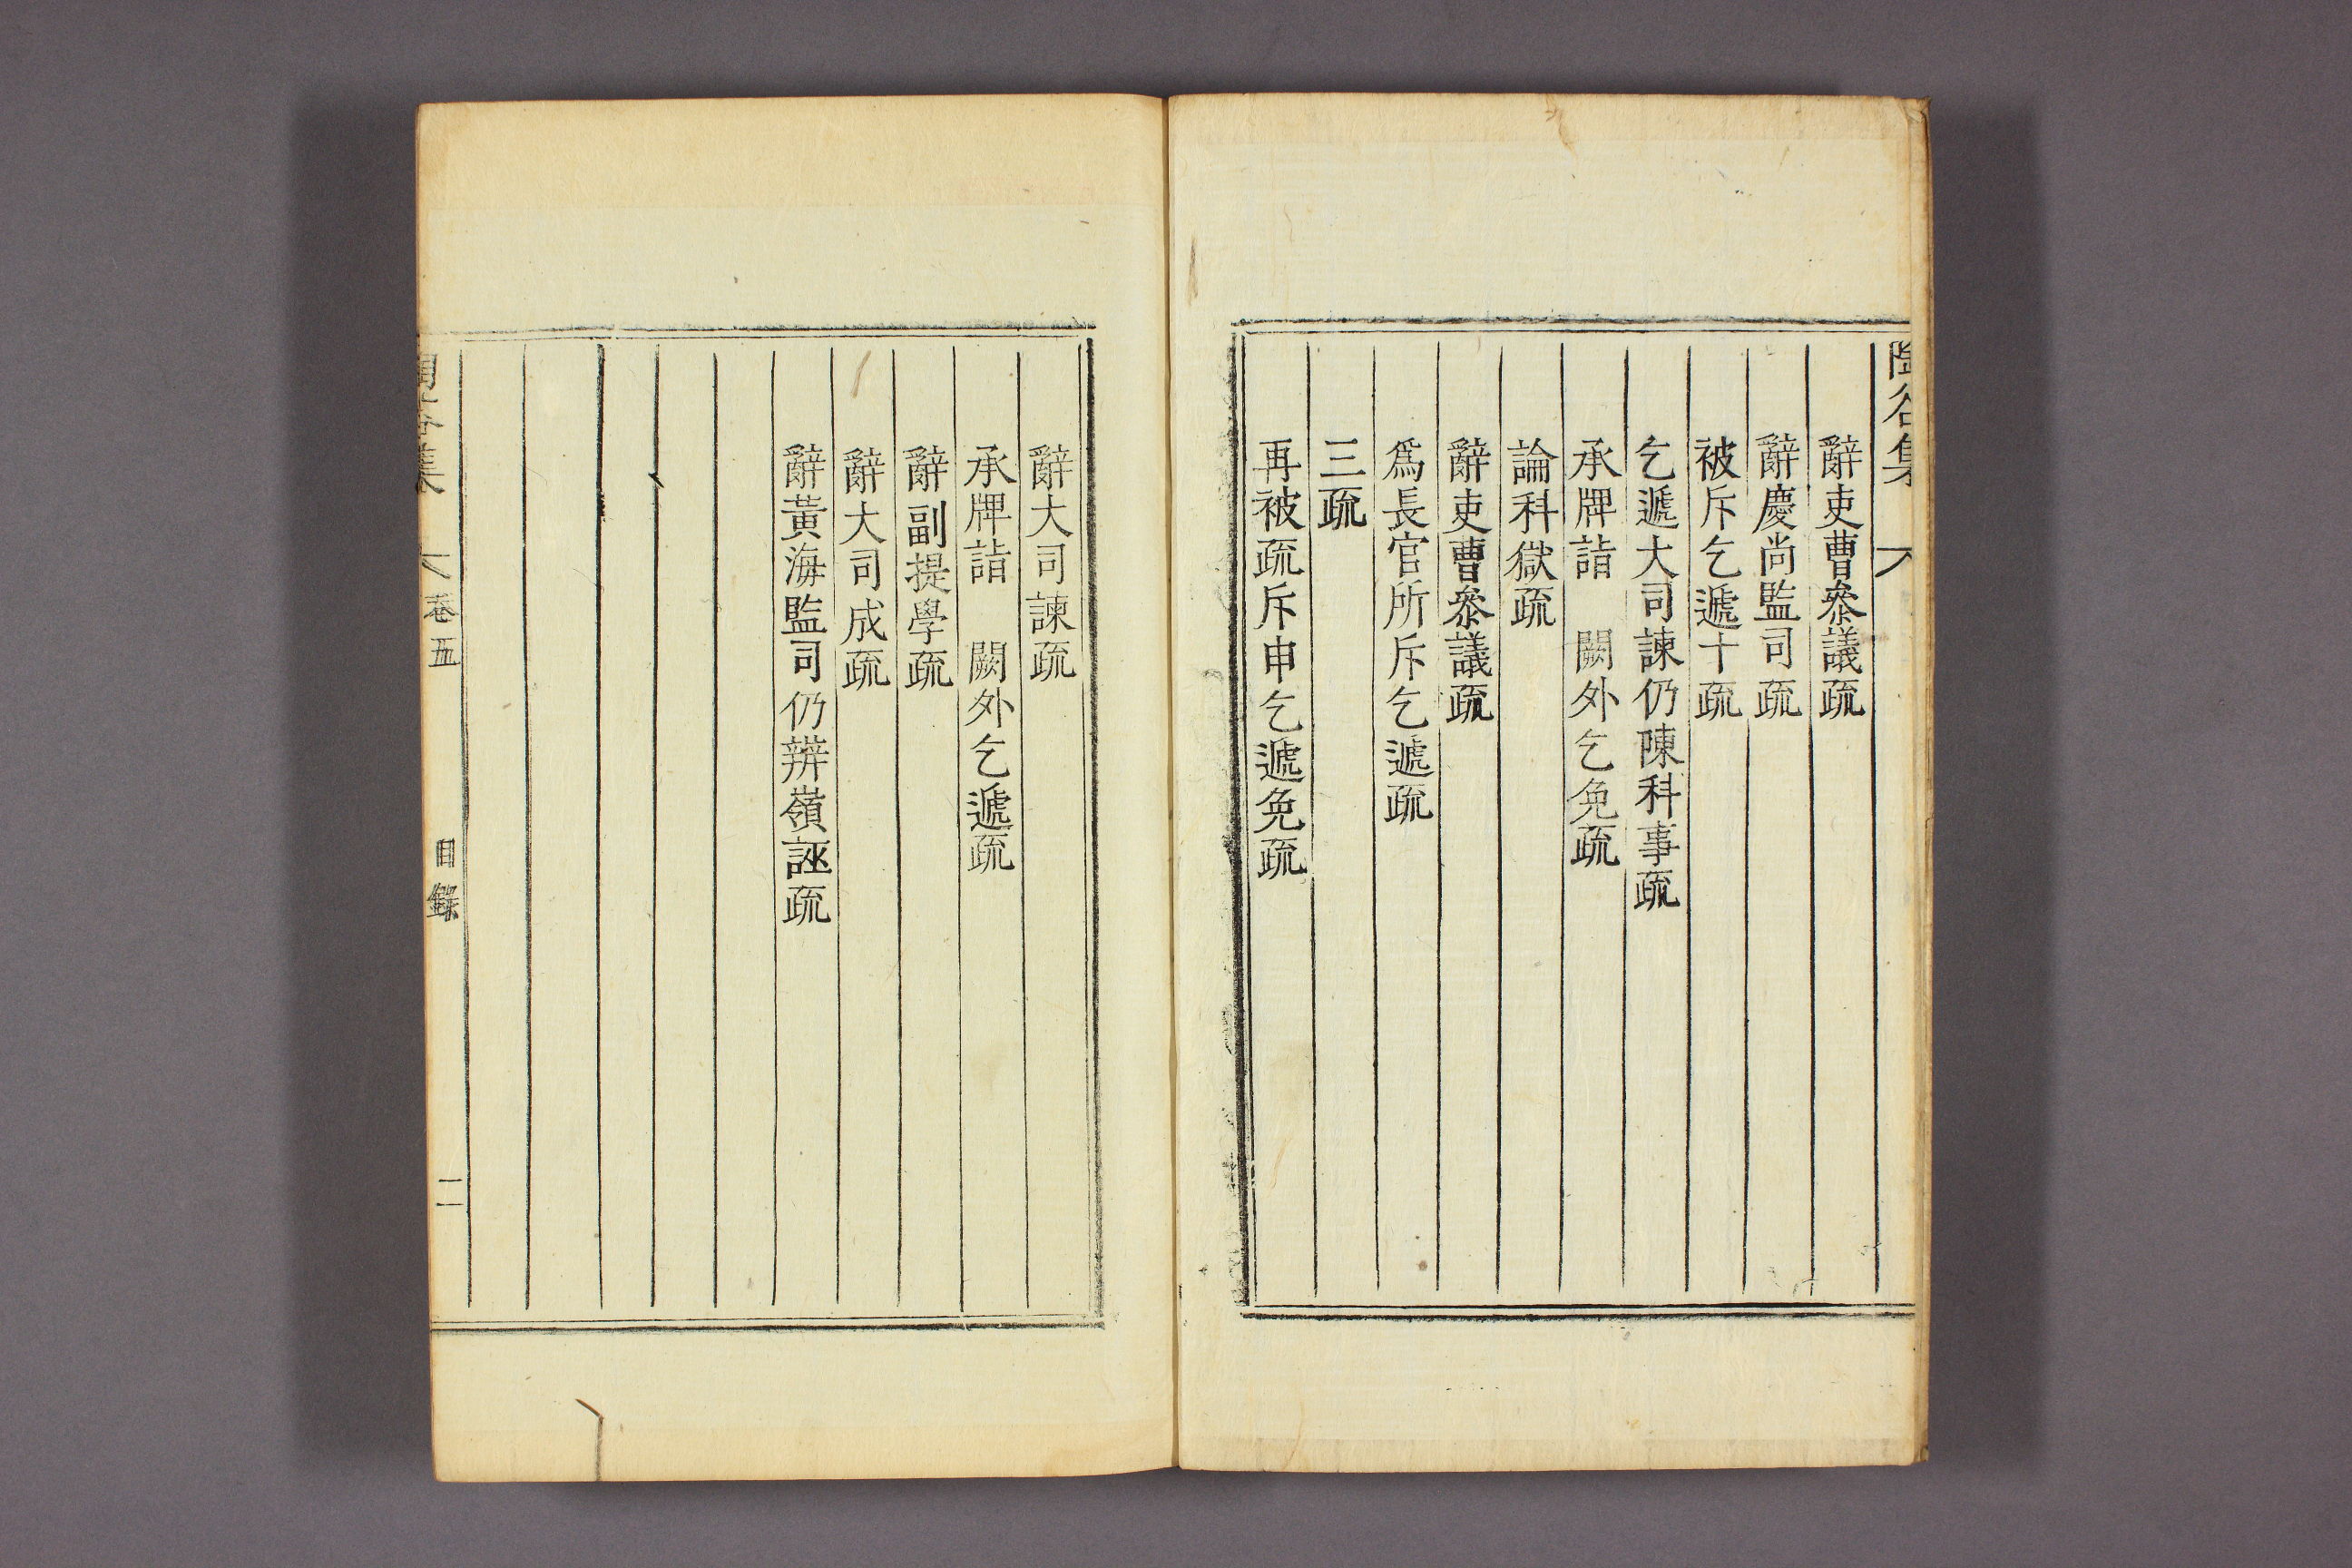 辭吏曹叅議疏
辭慶尚監司疏
被斥乞遞十疏
乞遞大司諫仍陳科事疏
承牌詣　闕外乞免疏
論科獄疏
辭吏曹叅議疏
爲長官所斥乞遞疏
三疏
再被疏斥申乞遞免疏
辭大司諫疏
承牌詣　闕外乞遞疏
辭副提學疏
辭大司成疏
辭黃海監司仍辨嶺誣疏
集　卷五　目錄　二